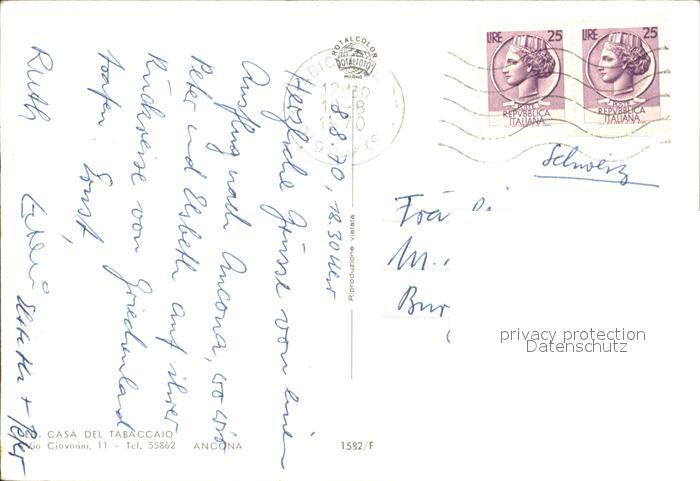 8.8.70, 18.30 Uhr
Herzliche Grüsse von einem
Ausflug nach Ancona, wo wir
Peter und Elsbeth auf ihrer
Rückreise von Griechenland
trafen. Ernst,
Ruth
Elsbeth + Peter
ROTALCOLOR
ROTALFOTO
MILANO
LIRE 25
POSTE
REPVBBLICA
ITALIANA
LIRE 25
POSTE
REPVBBLICA
ITALIANA
Schweiz
Riproduzione vietata
privacy protection
Datenschutz
CASA DEL TABACCAIO
Via Giovanini, 11 - Tel. 55862 ANCONA
1582/F